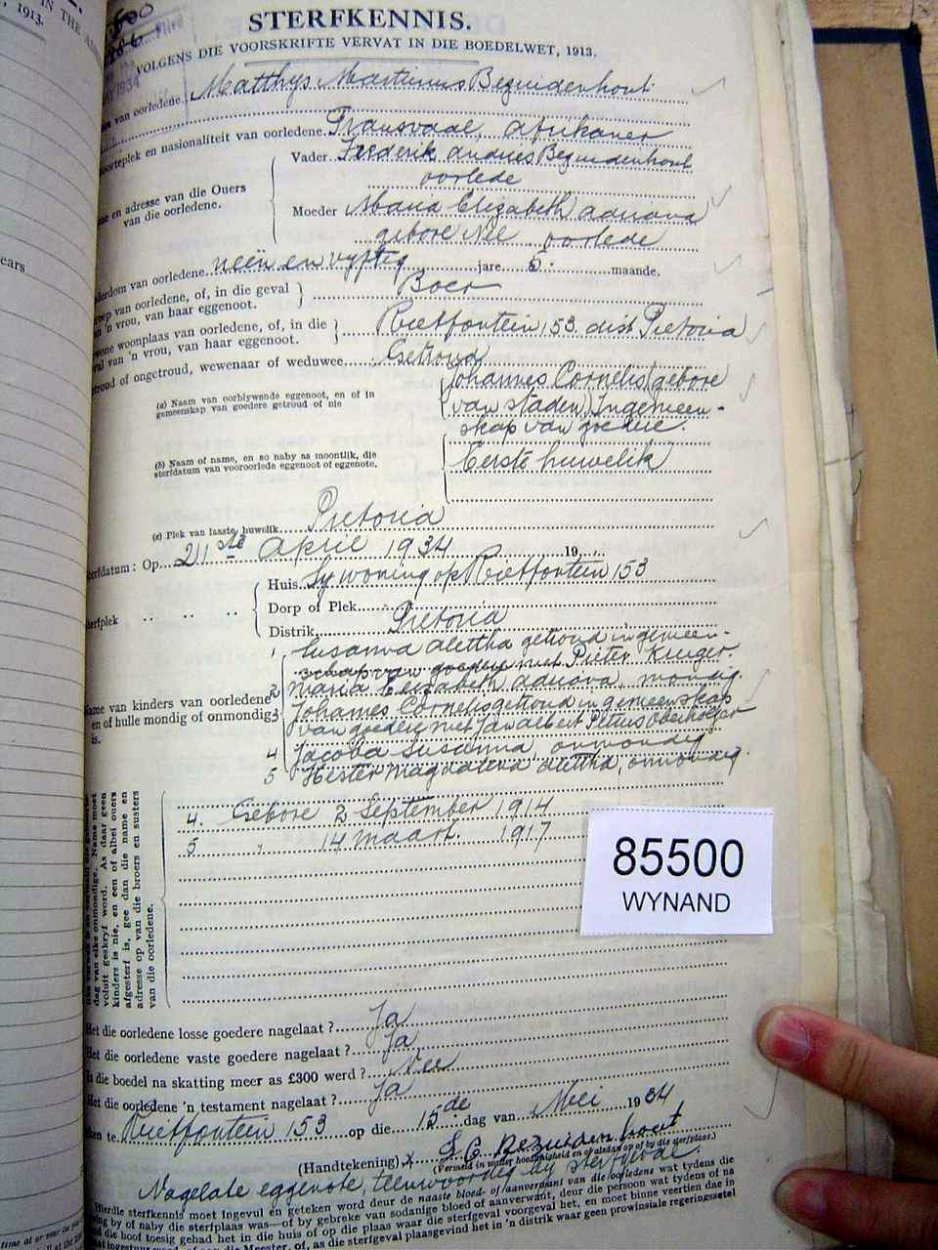 IN THE
, 1913.
ears
STERFKENNIS.
VOLGENS DIE VOORSKRIFTE VERVAT IN DIE BOEDELWET, 1913.
van oorledene Matthys Martinus Bezuidenhout
oorteplek en nasionaliteit van oorledene. Transvaal, Afrikaner
Vader Frederik Andries Bezuidenhout
oorlede
en adresse van die Ouers
van die oorledene.
Moeder Maria Elizabeth Adriana
gebore Nel oorlede
derdom van oorledene. neën en vyftig jare. 5. maande.
ep van oorledene, of, in die geval
'n vrou, van haar eggenoot. Boer
wone woonplas van oorledene, of, in die
val van 'n vrou, van haar eggenoot. Rietfontein 153. dist Pretoria
etroud of ongetroud, wewenaar of weduwee Getroud
(a) Naam van oorblywende eggenoot, en of in
gemeenskap van goedere getroud of nie
Johannes Cornelis (gebore
van Staden) In gemeen-
skap van goedere.
(b) Naam of name, en so naby as moontlik, die
sterfdatum van vooroorlede eggenoot of eggenote.
Eerste huwelik
(c) Plek van laaste huwelik Pretoria
terfdatum : Op 21ste April 1934 19
Huis. Sy woning op Rietfontein 153
terfplek
Dorp of Plek
Distrik. Pretoria
1 Susanna Alettha getroud in gemeen-
skap van goedere met Pieter Kruger.
2 Maria Elizabeth Adriana, mondig
Name van kinders van oorledene
en of hulle mondig of onmondig
is.
3 Johannes Cornelis getroud in gemeenskap
van goedere met Jan Albert Petrus Oberholzer
4 Jacoba Susanna, onmondig
5 Hester Magdalena Alettha, onmondig
4. Gebore 2 September 1914
5 " 14 Maart. 1917
dag van elke onmondige. Name moet
voluit geskryf word. As daar geen
kinders is nie, en een of albei ouers
afgesterf is, gee dan die name en
adresse op van die broers en susters
van die oorledene.
85500
WYNAND
Het die oorledene losse goedere nagelaat ? Ja
Het die oorledene vaste goedere nagelaat ? Ja
Is die boedel na skatting meer as £300 werd ? Nee
Het die oorledene 'n testament nagelaat ? Ja
te Rietfontein 153 op die 15de dag van Mei 1934
(Handtekening) x S. C. Bezuidenhout
(Vermeld in watter hoedanigheid en of aldan op of by die sterfplaas.)
Nagelate eggenote, teenwoordig by sterfgeval.
Hierdie sterfkennis moet ingevul en geteken word deur die naaste bloed- of aanverwant van die oorledene wat tydens die
ing by of naby die sterfplaas was—of by gebreke van sodanige bloed of aanverwant, deur die persoon wat tydens of na
die hoof toesig gehad het in die huis of op die plaas waar die sterfgeval voorgeval het, en moet binne veertien dae in
of, as die sterfgeval plaasgevind het in 'n distrik waar geen prowinsiale regeringssetel